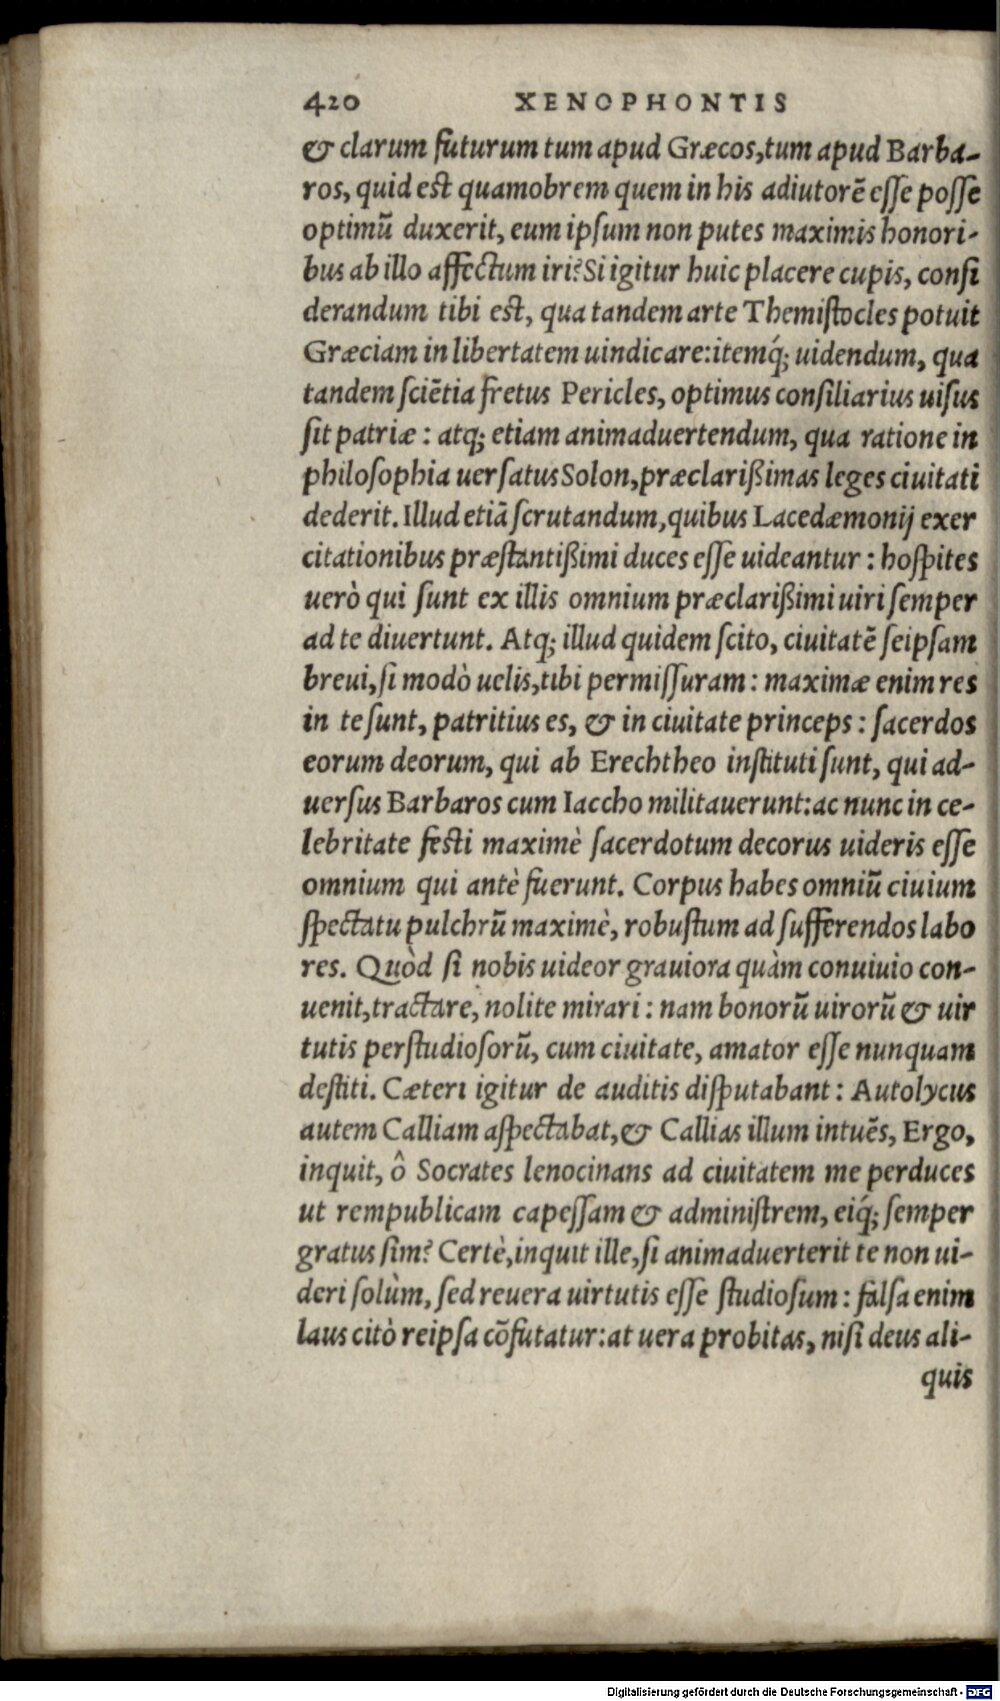 420 XENOPHONTIS
& clarum futurum tum apud Græcos, tum apud Barba-
ros, quid est quamobrem quem in his adiutorē esse posse
optimū duxerit, eum ipsum non putes maximis honori-
bus ab illo affectum iri? Si igitur huic placere cupis, consi
derandum tibi est, qua tandem arte Themistocles potuit
Græciam in libertatem uindicare: itemq́; uidendum, qua
tandem sciētia fretus Pericles, optimus consiliarius uisus
sit patriæ: atq; etiam animaduertendum, qua ratione in
philosophia uersatus Solon, præclarißimas leges ciuitati
dederit. Illud etiā scrutandum, quibus Lacedæmonij exer
citationibus præstantißimi duces esse uideantur: hospites
uerò qui sunt ex illis omnium præclarißimi uiri semper
ad te diuertunt. Atq; illud quidem scito, ciuitatē seipsam
breui, si modò uelis, tibi permissuram: maximæ enim res
in te sunt, patritius es, & in ciuitate princeps: sacerdos
eorum deorum, qui ab Erechtheo instituti sunt, qui ad-
uersus Barbaros cum Iaccho militauerunt: ac nunc in ce-
lebritate festi maximè sacerdotum decorus uideris esse
omnium qui antè fuerunt. Corpus habes omniū ciuium
spectatu pulchrū maximè, robustum ad sufferendos labo
res. Quòd si nobis uideor grauiora quàm conuiuio con-
uenit, tractare, nolite mirari: nam bonorū uirorū & uir
tutis perstudiosorū, cum ciuitate, amator esse nunquam
destiti. Cæteri igitur de auditis disputabant: Autolycus
autem Calliam aspectabat, & Callias illum intuēs, Ergo,
inquit, ô Socrates lenocinans ad ciuitatem me perduces
ut rempublicam capessam & administrem, eiq́; semper
gratus sim? Certè, inquit ille, si animaduerterit te non ui-
deri solùm, sed reuera uirtutis esse studiosum: falsa enim
laus citò reipsa cōfutatur: at uera probitas, nisi deus ali-
quis
Digitalisierung gefördert durch die Deutsche Forschungsgemeinschaft - DFG